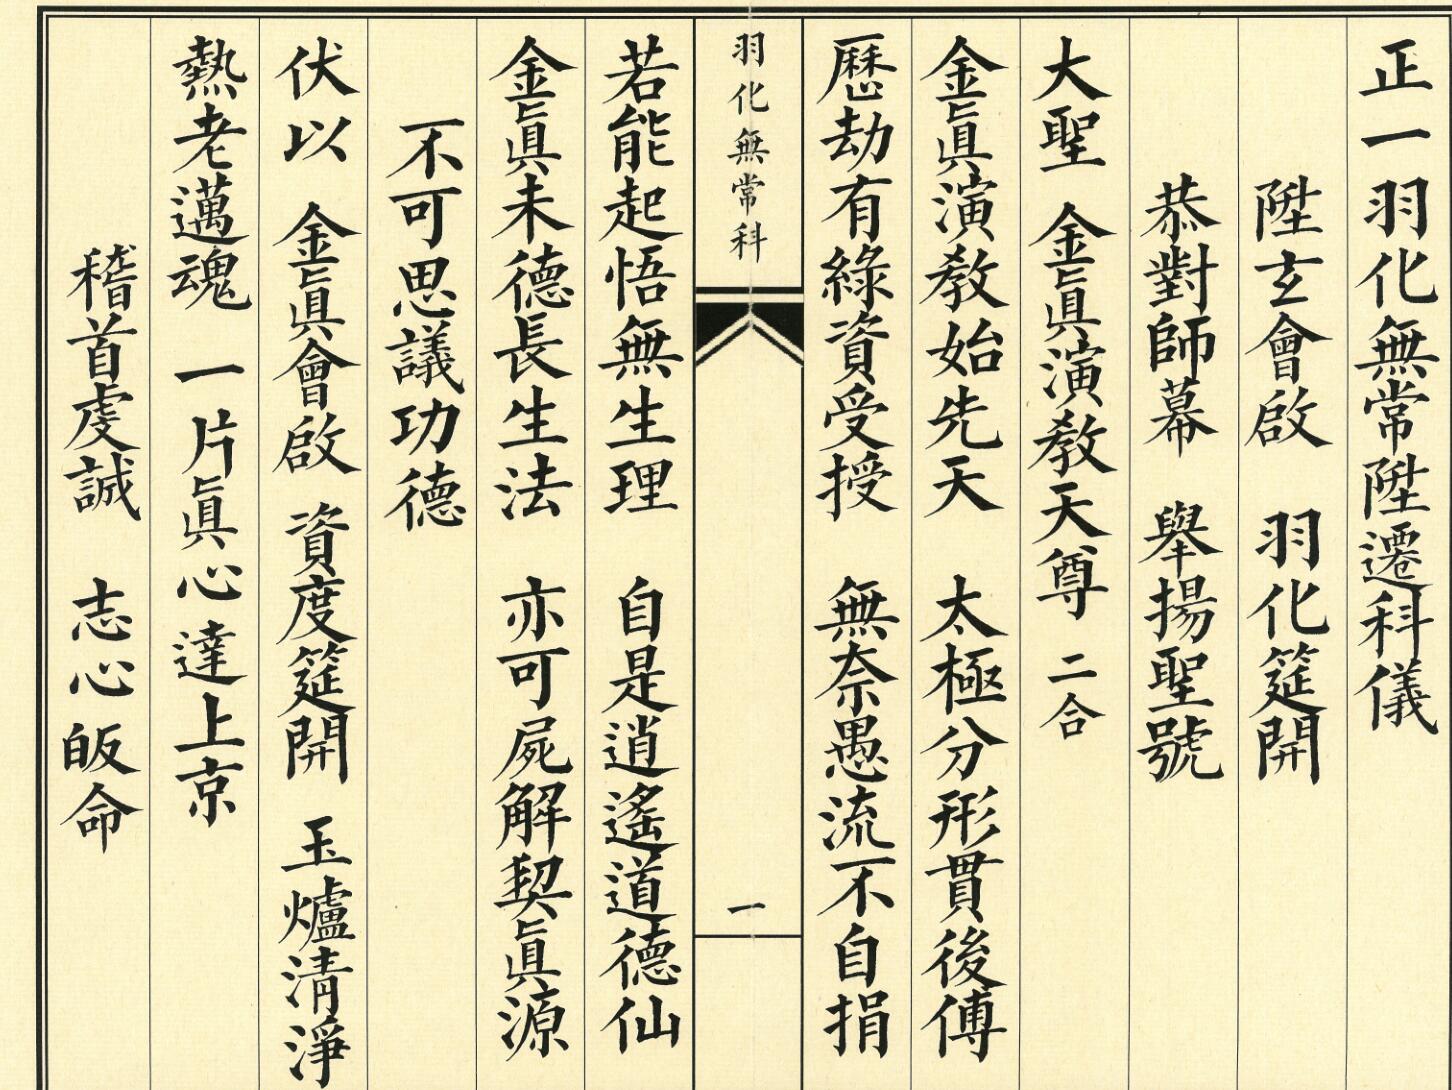 正一羽化無常陞遷科儀
陞玄會啟　羽化筵開
恭對師幕　舉揚聖號
大聖　金眞演教天尊　二合
金眞演教始先天　太極分形貫後傅
歷劫有綠資受授　無奈愚流不自捐
羽化無常科
一
若能起悟無生理　自是逍遙道德仙
金眞未德長生法　亦可屍解契眞源
不可思議功德
伏以　金眞會啟　資度筵開　玉爐清淨
熱老邁魂　一片眞心達上京
稽首虔誠　志心皈命